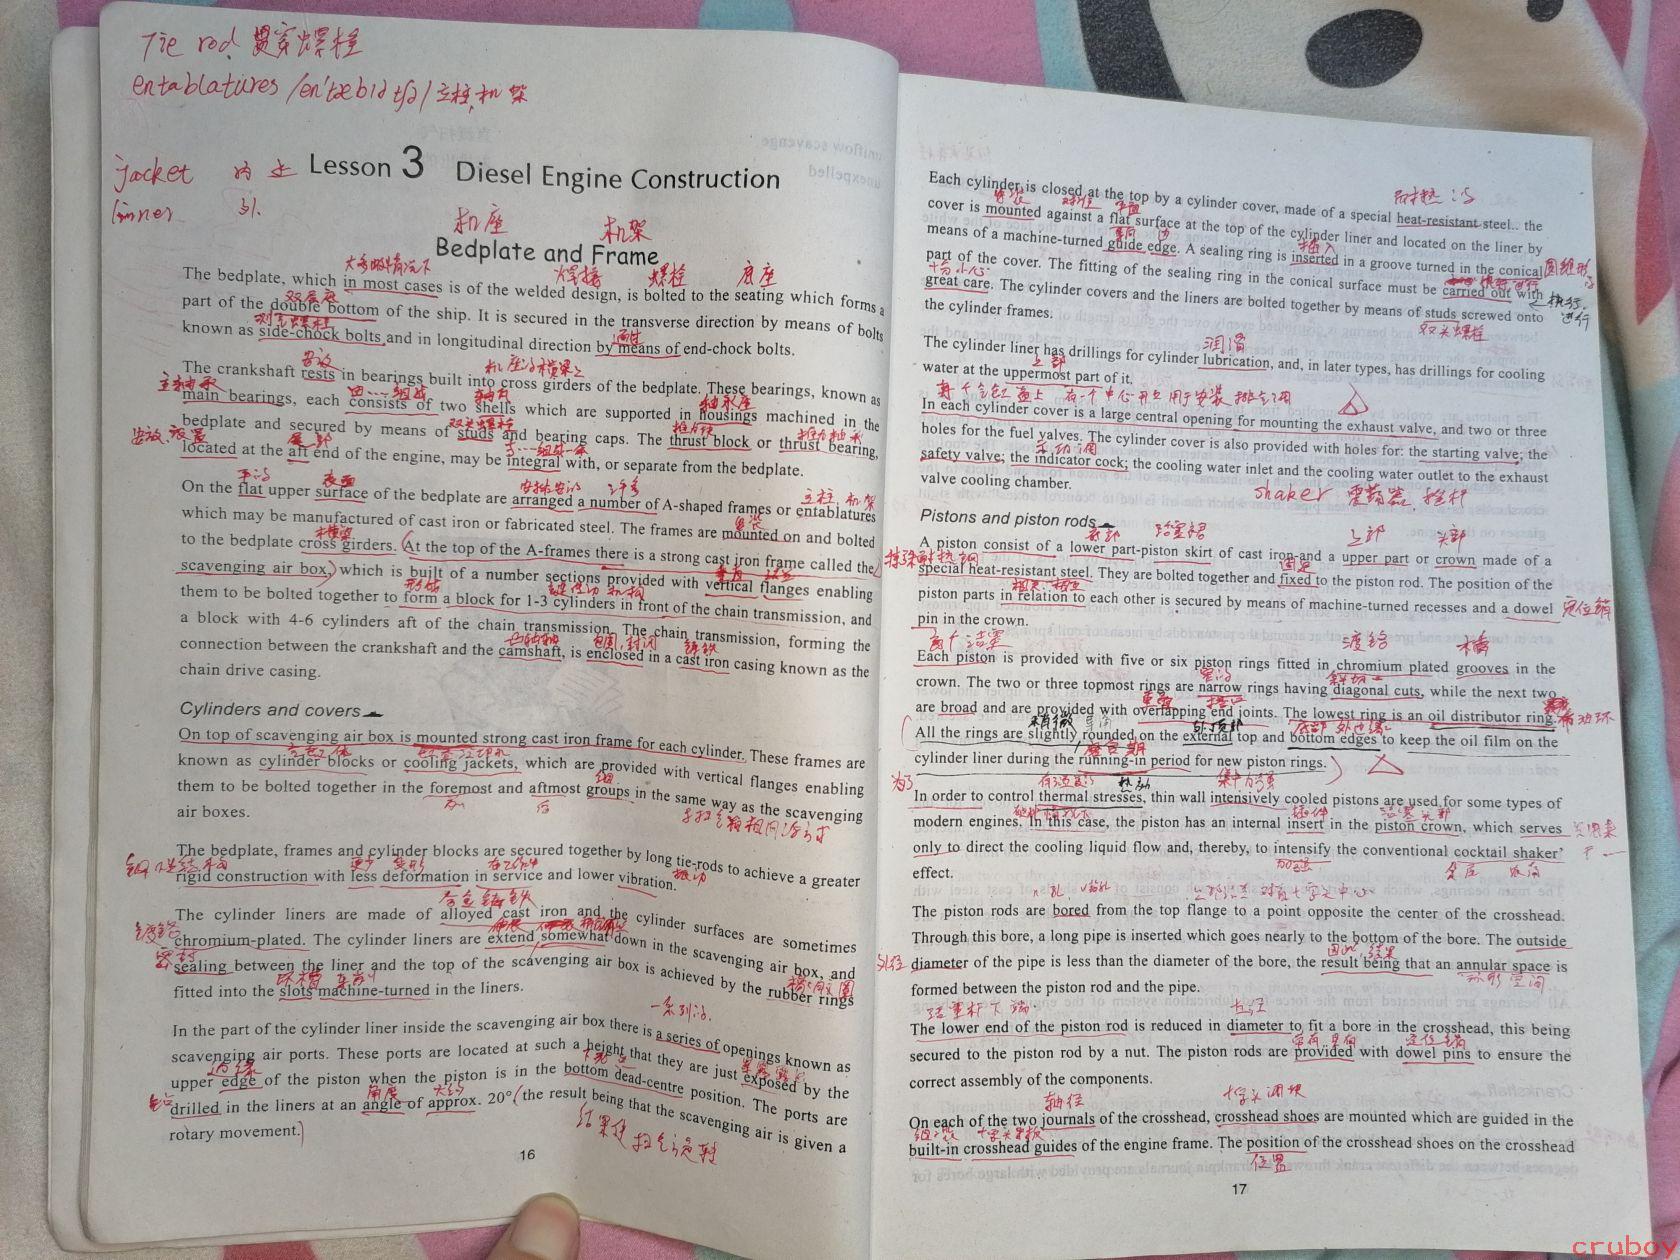 Tie rod 贯穿螺栓
entablatures /en'tæblətʃə/ 立柱,机架
jacket
linner
Lesson 3 Diesel Engine Construction
机座 机架
Bedplate and Frame
大多数情况下 焊接 螺栓 底座
The bedplate, which in most cases is of the welded design, is bolted to the seating which forms a
双层底
part of the double bottom of the ship. It is secured in the transverse direction by means of bolts
known as side-chock bolts and in longitudinal direction by means of end-chock bolts.
安放
The crankshaft rests in bearings built into cross girders of the bedplate. These bearings, known as
主轴承
main bearings, each consists of two shells which are supported in housings machined in the
双头螺栓
bedplate and secured by means of studs and bearing caps. The thrust block or thrust bearing,
安放,设置 尾部
located at the aft end of the engine, may be integral with, or separate from the bedplate.
表面 许多 立柱 机架
On the flat upper surface of the bedplate are arranged a number of A-shaped frames or entablatures
which may be manufactured of cast iron or fabricated steel. The frames are mounted on and bolted
横梁
to the bedplate cross girders. (At the top of the A-frames there is a strong cast iron frame called the
scavenging air box,) which is built of a number sections provided with vertical flanges enabling
them to be bolted together to form a block for 1-3 cylinders in front of the chain transmission, and
a block with 4-6 cylinders aft of the chain transmission. The chain transmission, forming the
凸轮轴 包围,封闭 铸铁
connection between the crankshaft and the camshaft, is enclosed in a cast iron casing known as the
chain drive casing.
Cylinders and covers
On top of scavenging air box is mounted strong cast iron frame for each cylinder. These frames are
known as cylinder blocks or cooling jackets, which are provided with vertical flanges enabling
them to be bolted together in the foremost and aftmost groups in the same way as the scavenging
air boxes.
The bedplate, frames and cylinder blocks are secured together by long tie-rods to achieve a greater
rigid construction with less deformation in service and lower vibration.
合金铸铁
The cylinder liners are made of alloyed cast iron and the cylinder surfaces are sometimes
镀铬
chromium-plated. The cylinder liners are extend somewhat down in the scavenging air box, and
密封
sealing between the liner and the top of the scavenging air box is achieved by the rubber rings
fitted into the slots machine-turned in the liners.
一系列的
In the part of the cylinder liner inside the scavenging air box there is a series of openings known as
scavenging air ports. These ports are located at such a height that they are just exposed by the
边缘
upper edge of the piston when the piston is in the bottom dead-centre position. The ports are
钻 角度 大约
drilled in the liners at an angle of approx. 20° (the result being that the scavenging air is given a
rotary movement.)
16
Each cylinder is closed at the top by a cylinder cover, made of a special heat-resistant steel.. the
cover is mounted against a flat surface at the top of the cylinder liner and located on the liner by
插入
means of a machine-turned guide edge. A sealing ring is inserted in a groove turned in the conical 圆锥形
十分小心
part of the cover. The fitting of the sealing ring in the conical surface must be carried out with
great care. The cylinder covers and the liners are bolted together by means of studs screwed onto 进行
the cylinder frames.
双头螺栓
润滑
The cylinder liner has drillings for cylinder lubrication, and, in later types, has drillings for cooling
上部
water at the uppermost part of it.
In each cylinder cover is a large central opening for mounting the exhaust valve, and two or three
holes for the fuel valves. The cylinder cover is also provided with holes for: the starting valve; the
safety valve; the indicator cock; the cooling water inlet and the cooling water outlet to the exhaust
valve cooling chamber.
shaker
Pistons and piston rods
底部 活塞裙 上部 头部
A piston consist of a lower part-piston skirt of cast iron-and a upper part or crown made of a
特殊耐热钢 固定
special heat-resistant steel. They are bolted together and fixed to the piston rod. The position of the
piston parts in relation to each other is secured by means of machine-turned recesses and a dowel 定位销
pin in the crown.
每个活塞 渡铬 槽
Each piston is provided with five or six piston rings fitted in chromium plated grooves in the
crown. The two or three topmost rings are narrow rings having diagonal cuts, while the next two
are broad and are provided with overlapping end joints. The lowest ring is an oil distributor ring.
稍微 外顶部
All the rings are slightly rounded on the external top and bottom edges to keep the oil film on the
磨合期
cylinder liner during the running-in period for new piston rings.)
为了
In order to control thermal stresses, thin wall intensively cooled pistons are used for some types of
插件 活塞头部
modern engines. In this case, the piston has an internal insert in the piston crown, which serves
only to direct the cooling liquid flow and, thereby, to intensify the conventional cocktail shaker'
加强
effect.
The piston rods are bored from the top flange to a point opposite the center of the crosshead.
Through this bore, a long pipe is inserted which goes nearly to the bottom of the bore. The outside
外径 因此,结果
diameter of the pipe is less than the diameter of the bore, the result being that an annular space is
环形空间
formed between the piston rod and the pipe.
活塞杆下端 直径
The lower end of the piston rod is reduced in diameter to fit a bore in the crosshead, this being
定位销
secured to the piston rod by a nut. The piston rods are provided with dowel pins to ensure the
correct assembly of the components.
轴径 十字头滑块
On each of the two journals of the crosshead, crosshead shoes are mounted which are guided in the
built-in crosshead guides of the engine frame. The position of the crosshead shoes on the crosshead
位置
17
cruboy